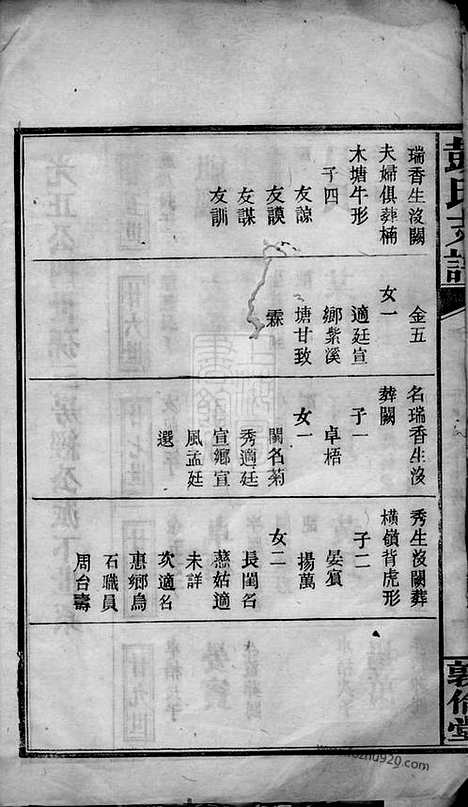 彭氏支譜
瑞香生沒闕
夫婦俱葬楠
木塘牛形
子四
友諒
友謨
友謀
友訓
金五
女一
適廷宣
鄉紫溪
塘甘致
霖
名瑞香生沒
葬闕
子一
卓梧
女一
閨名菊
秀適廷
宣鄉宣
風孟廷
選
秀生沒闕葬
橫嶺背虎形
子二
晏賔
揚萬
女二
長閨名
蕙姑適
未詳
次適名
惠鄉鳥
石職員
周台壽
敦倫堂